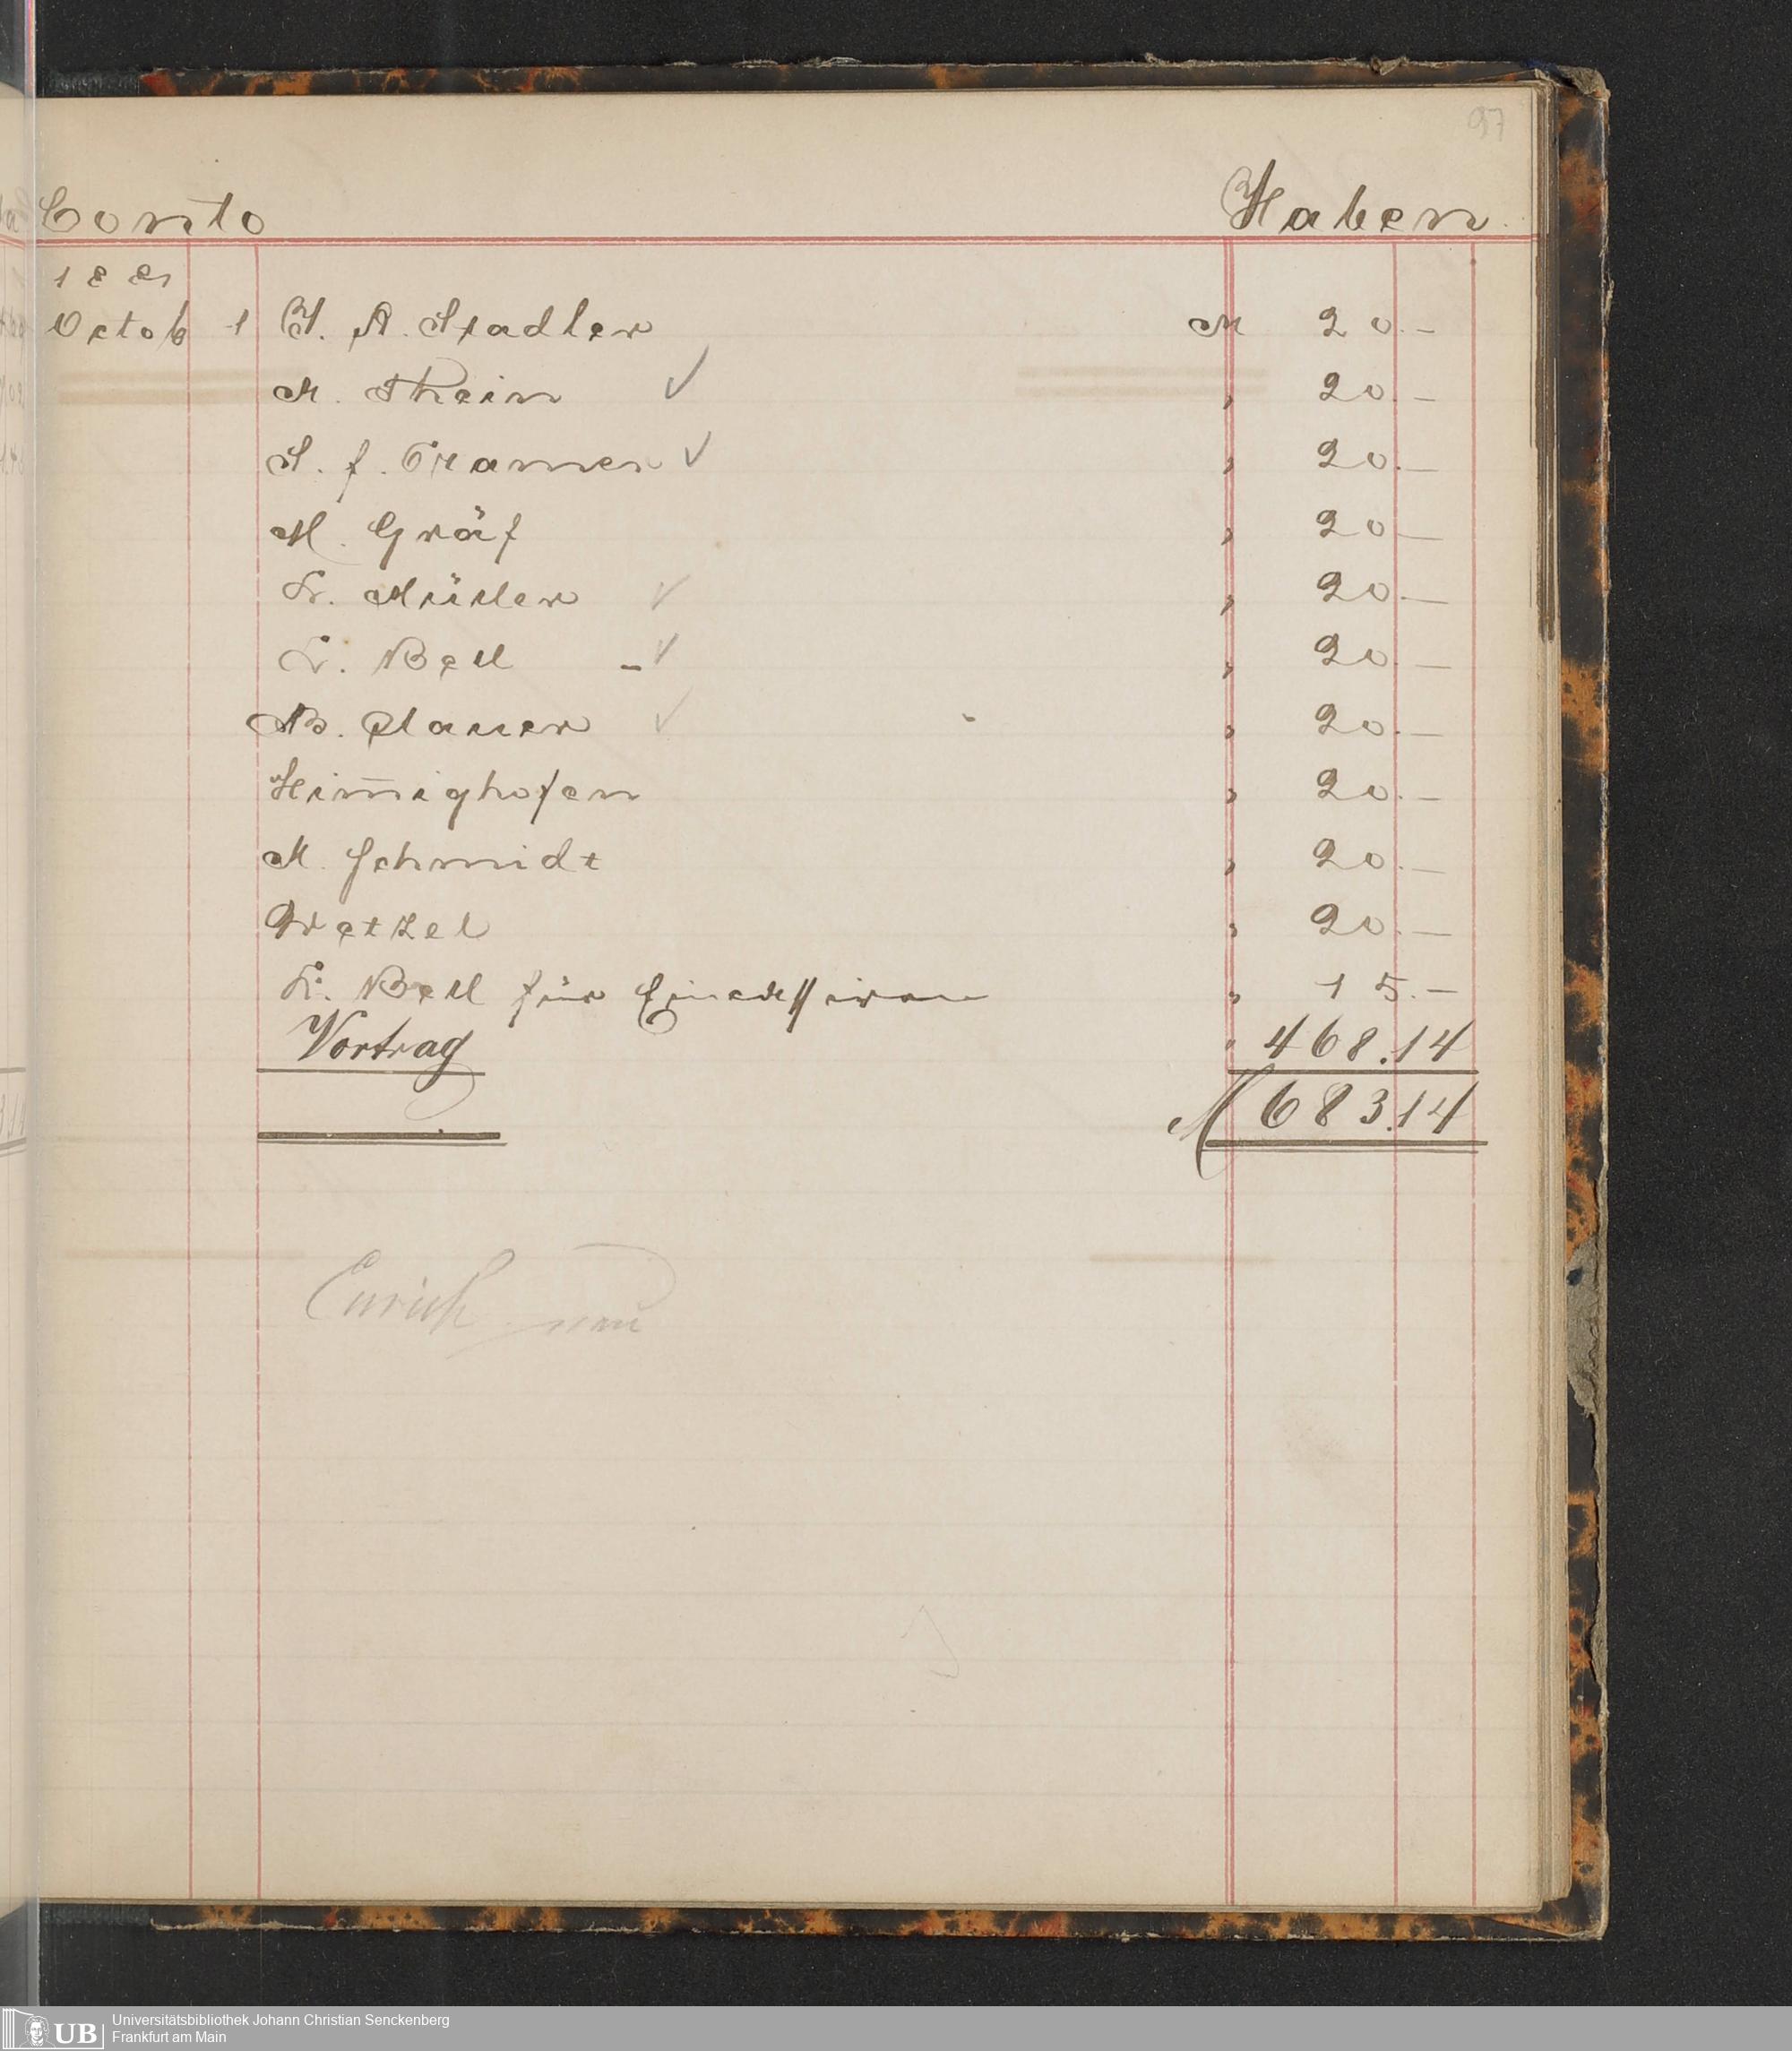 97
Conto Haben
188
Octob 1 J. A. Stadler M 20.—
M. Thein ✓ „ 20.—
S. f. Cramer ✓ „ 20.—
M. Gräf „ 20.—
L. Müller ✓ „ 20.—
L. Bell – ✓ „ 20.—
B. Clauer ✓ „ 20.—
Heim̅ighofen „ 20.—
M. Schmidt „ 20.—
Wetzel „ 20.—
L. Bell für „ 15.—
Vortrag „ 468.14
M 683.14
Universitätsbibliothek Johann Christian Senckenberg
UB Frankfurt am Main